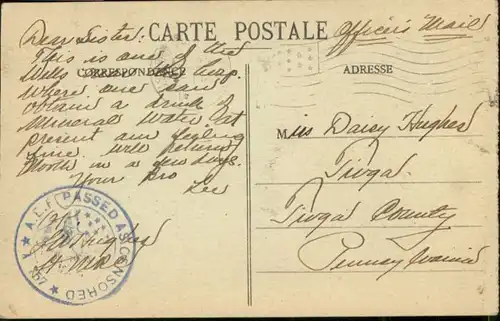 CARTE POSTALE
Officers Mail
CORRESPONDENCE
ADRESSE
Dear Sister:
This is one of the
Wells
where one can
obtain a drink of
Mineral Water. At
present am feeling
fine will return
North in a few days.
Your Bro
Lee
A.E.F. PASSED AS CENSORED
Lee Hughes
Miss Daisy Hughes
Tioga
Tioga County
Pennsylvania